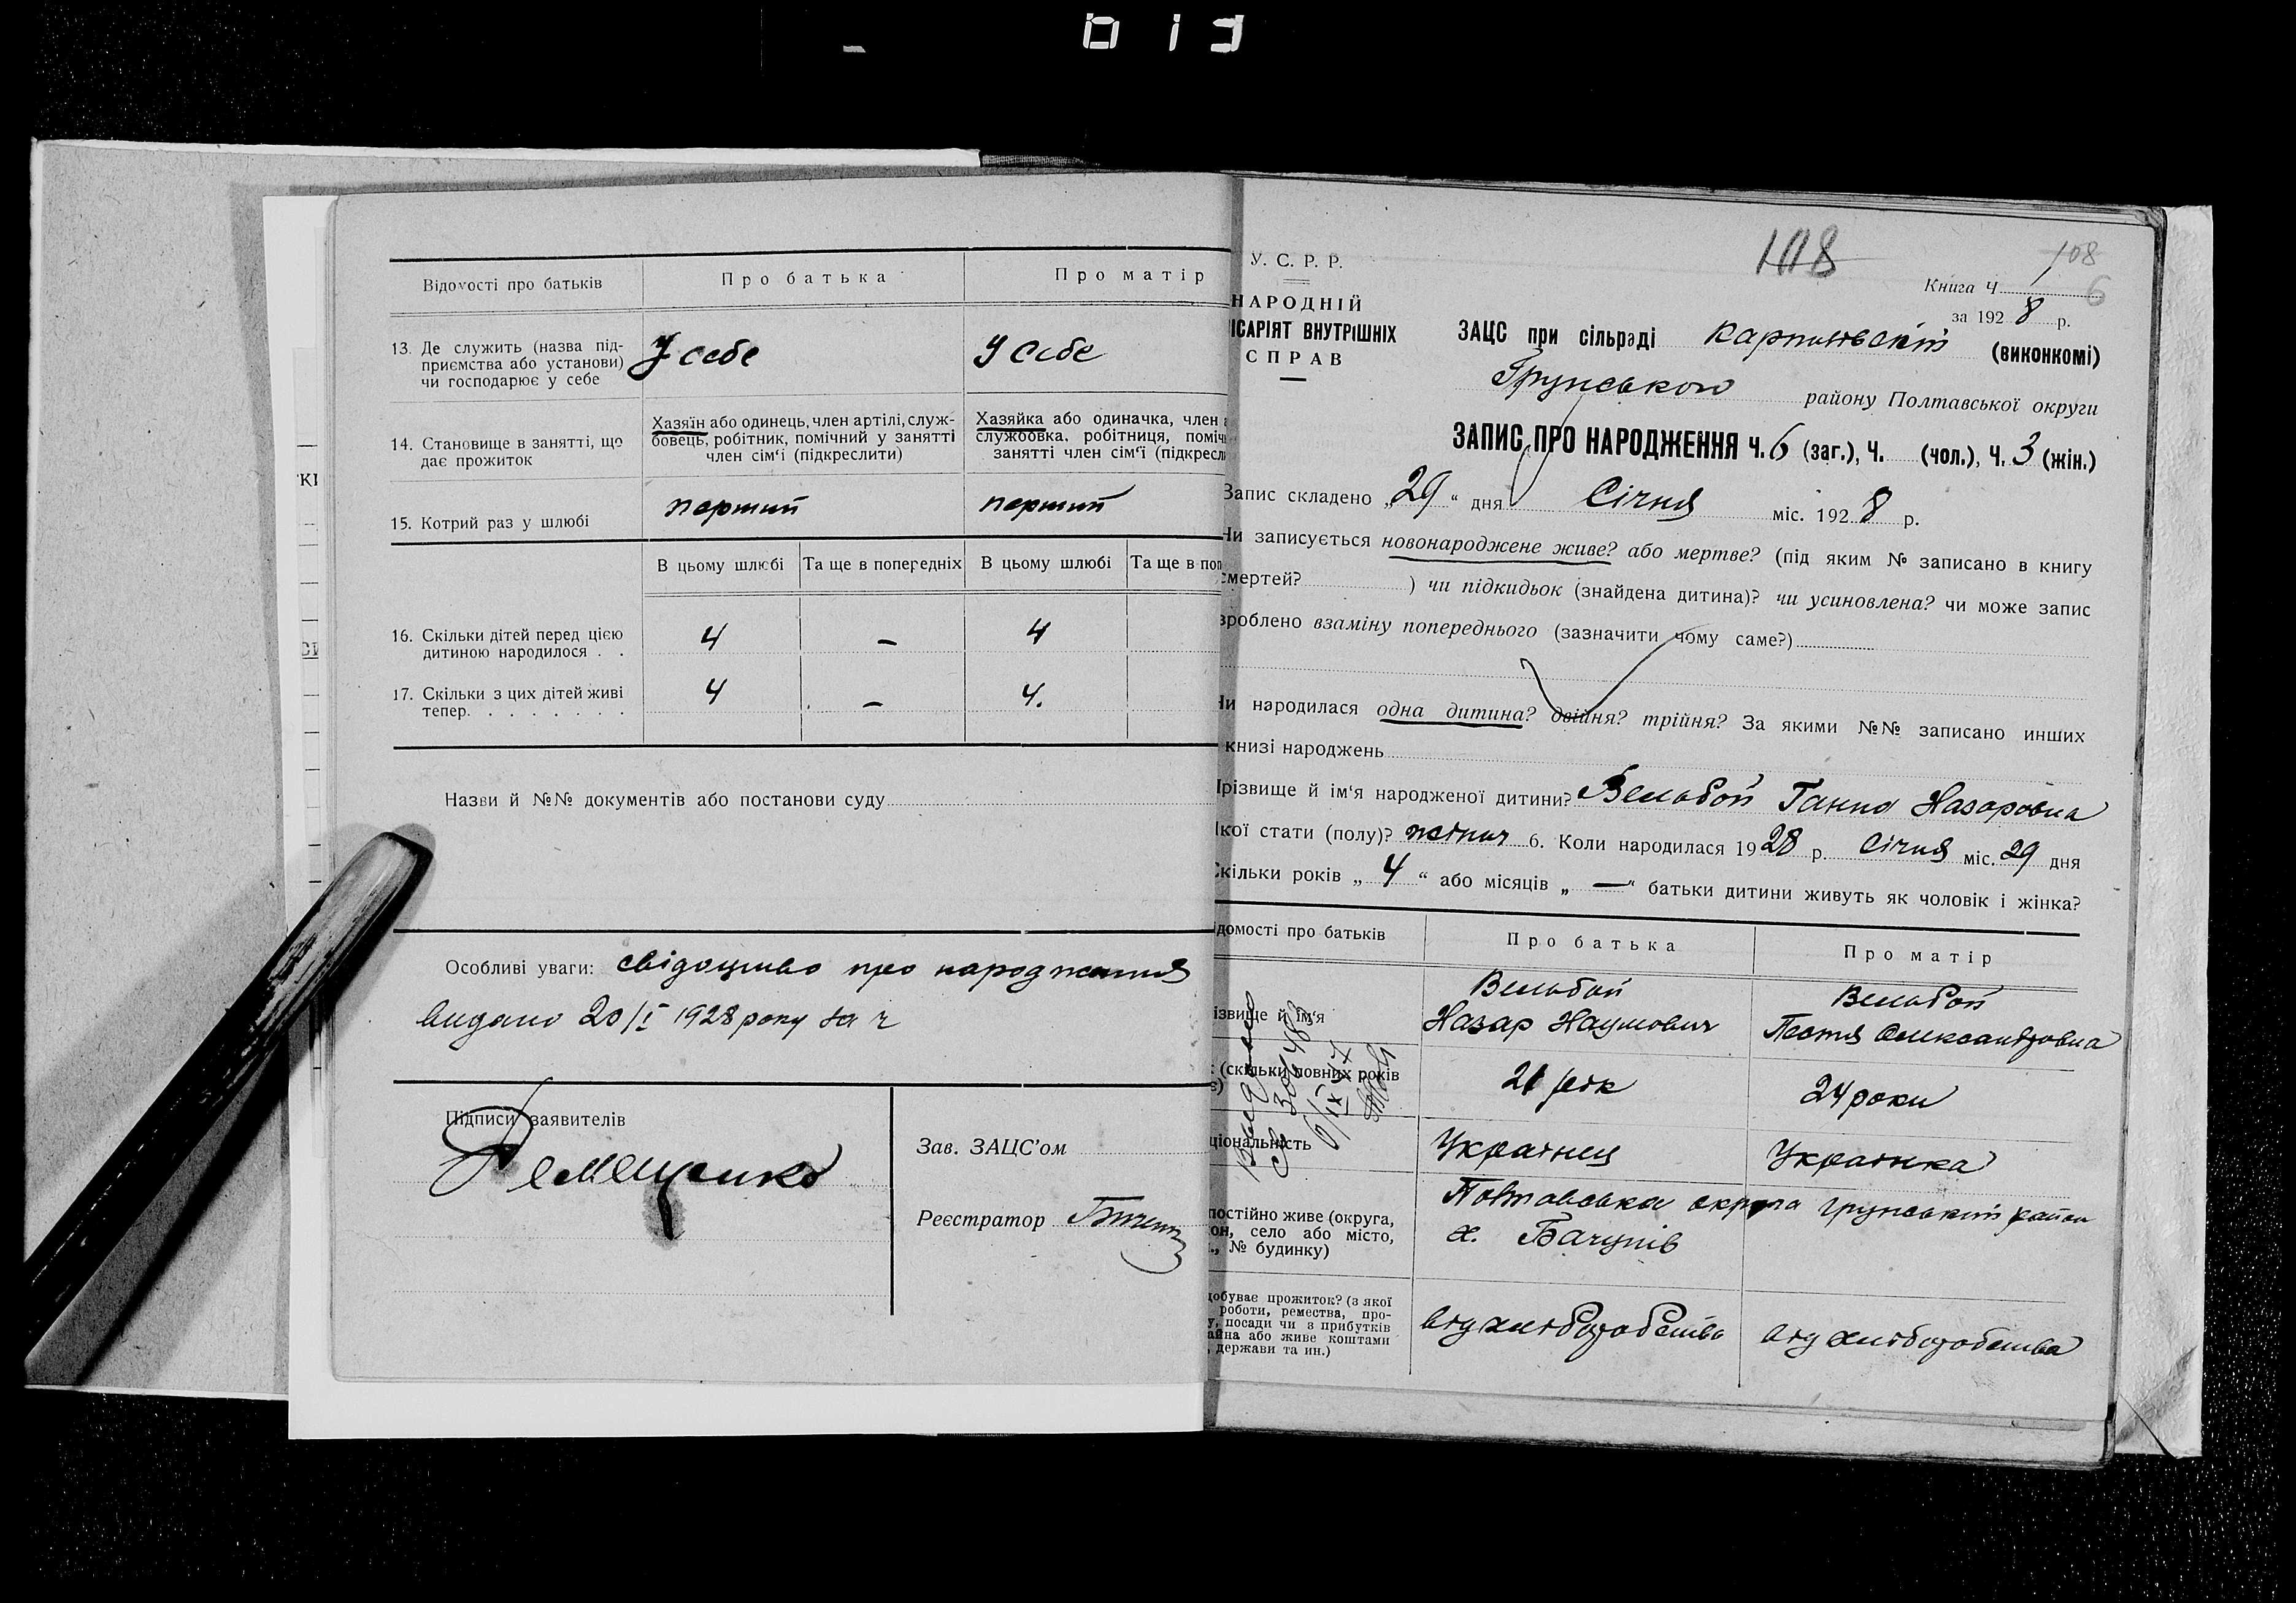 013
Відомості про батьків
Про батька
Про матір
13. Де служить (назва під-
приємства або установи)
чи господарює у себе
У себе
У себе
14. Становище в занятті, що
дає прожиток
Хазяїн або одинець, член артілі, служ-
бовець, робітник, помічний у занятті
член сім'ї (підкреслити)
Хазяйка або одиначка, член
службовка, робітниця, поміч
занятті член сім'ї (підкресл
15. Котрий раз у шлюбі
перший
перший
В цьому шлюбі
Та ще в попередніх
В цьому шлюбі
Та ще в поп
16. Скільки дітей перед цією
дитиною народилося . .
4 – 4
17. Скільки з цих дітей живі
тепер. . . . . . . .
4 – 4.
Назви й №№ документів або постанови суду
Особливі уваги: свідоцтво про народження
видано 20/I 1928 року за ч
Підписи заявителів
Ремещенко
Зав. ЗАЦС'ом
Реєстратор
У. С. Р. Р.
НАРОДНІЙ
ІСАРІЯТ ВНУТРІШНІХ
СПРАВ
108
108
Книга Ч. 1
6
за 1928 р.
ЗАЦС при сільраді (виконкомі)
Грунського району Полтавської округи
ЗАПИС ПРО НАРОДЖЕННЯ Ч. 6 (заг.), Ч. (чол.), Ч. 3 (жін.)
Запис складено „29“ дня Січня міс. 1928 р.
Чи записується новонароджене живе? або мертве? (під яким № записано в книгу
смертей? ) чи підкидьок (знайдена дитина)? чи усиновлена? чи може запис
зроблено взаміну попереднього (зазначити чому саме?)
Чи народилася одна дитина? двійня? трійня? За якими №№ записано инших
книзі народжень
Прізвище й ім'я народженої дитини? Вельбой Ганна Назаровна
якої стати (полу)? жіноч 6. Коли народилася 1928 р. Січня міс. 29 дня
Скільки років „4“ або місяців „—“ батьки дитини живуть як чоловік і жінка?
ідомості про батьків
Про батька
Про матір
ізвище й ім'я
Вельбой
Назар Наумович
Вельбой
Олександровна
(скільки повних років
24 роки
ціональність
Українец
Українка
постійно живе (округа,
он, село або місто,
., № будинку)
Полтавська округа Грунський район
х. Бачунів
добуває прожиток? (з якої
роботи, ремества, про-
у, посади чи з прибутків
айна або живе коштами
, держави та ин.)
від хліборобства
від хліборобства